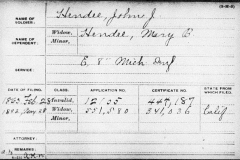 NAME OF SOLDIER: Hendee, John J.
NAME OF DEPENDENT: Widow, Hendee, Mary C
Minor,
SERVICE: E 8" Mich Inf
DATE OF FILING. CLASS. APPLICATION NO. CERTIFICATE NO. STATE FROM WHICH FILED.
1865 Feb 28 Invalid, 12155 447,187
1892 Widow, 551,580 341,036 Calif
Minor,
ATTORNEY:
REMARKS: